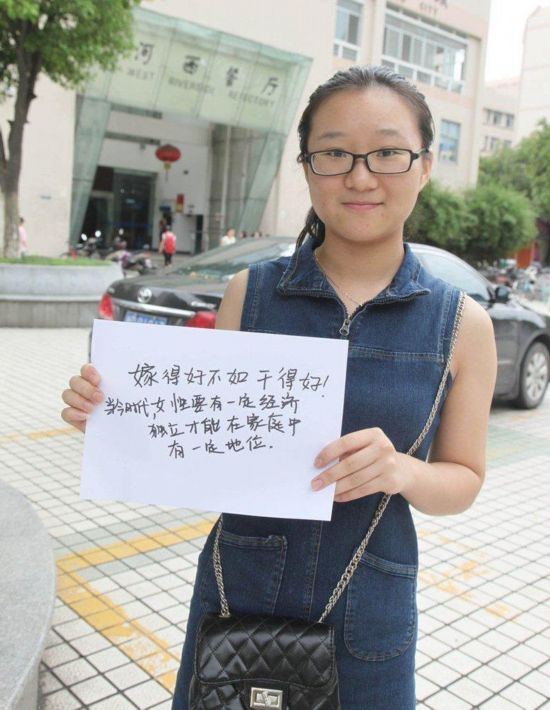 河西餐厅
WEST RIVERSIDE REFECTORY
CITY
嫁得好不如干得好!
当今时代女性要有一定经济
独立才能在家庭中
有一定地位.